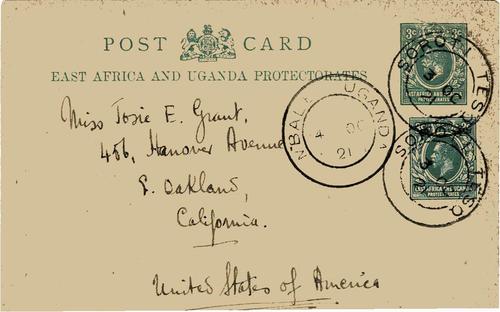 POST CARD
EAST AFRICA AND UGANDA PROTECTORATES
Miss Josie E. Grant,
456, Hanover Avenue
E. Oakland,
California.
United States of America
UGANDA
4 OC
21
3c 3c
EAST AFRICA AND UGANDA
PROTECTORATES
SOROTI TESO
EAST AFRICA AND UGANDA
PROTECTORATES
TESO